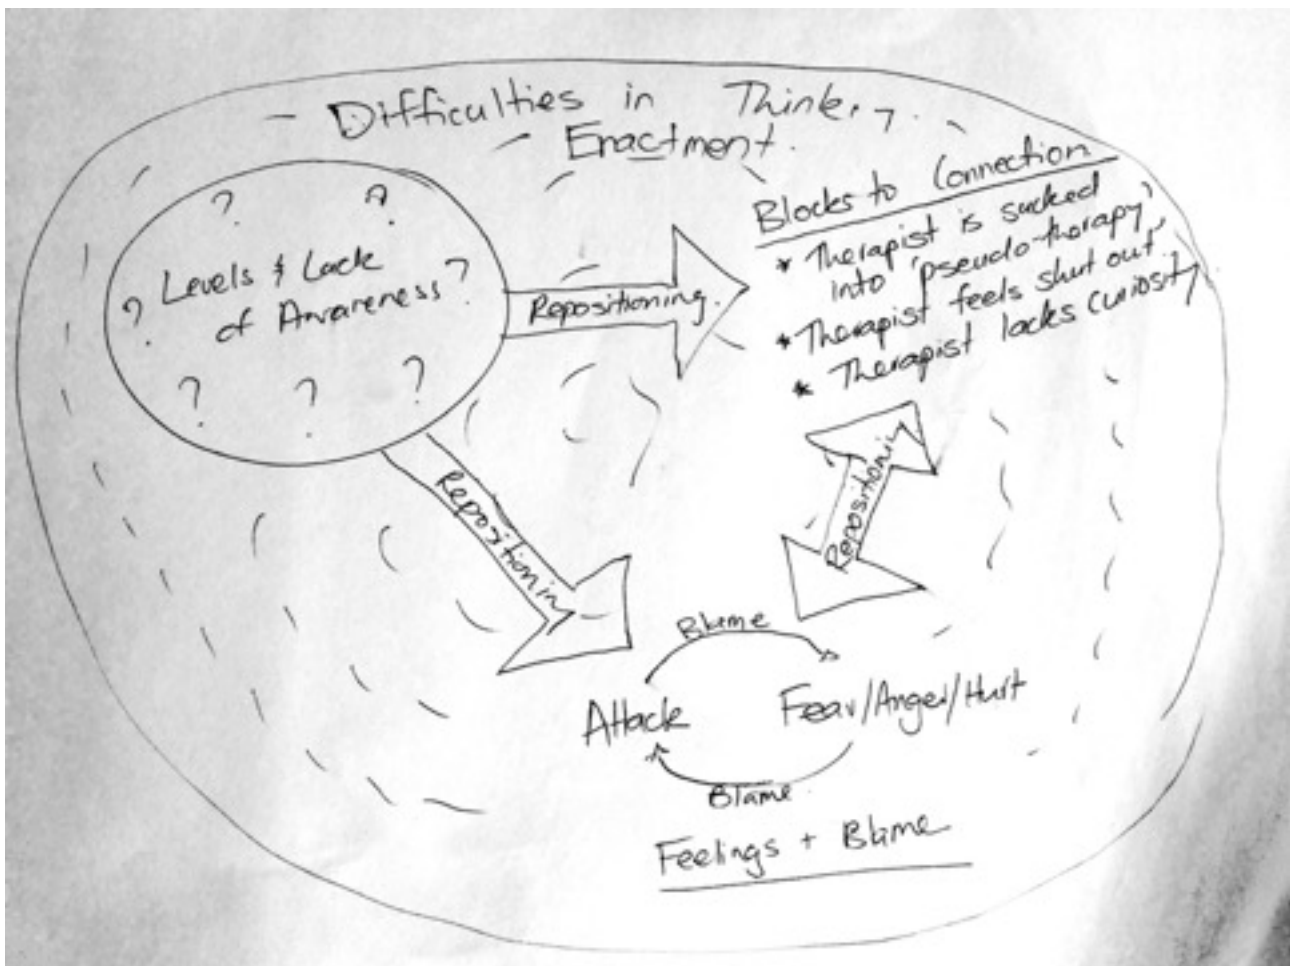 Difficulties in Think.
Enactment.
? ?
Levels & Lack
of Awareness
? ?
? ? ?
Repositioning.
Blocks to Connection
* Therapist is sucked
into 'pseudo-therapy'
* Therapist feels shut out
* Therapist lacks Curiosity
Repositionin
Repositioni
Blame
Attack
Fear/Anger/Hurt
Blame
Feelings + Blame